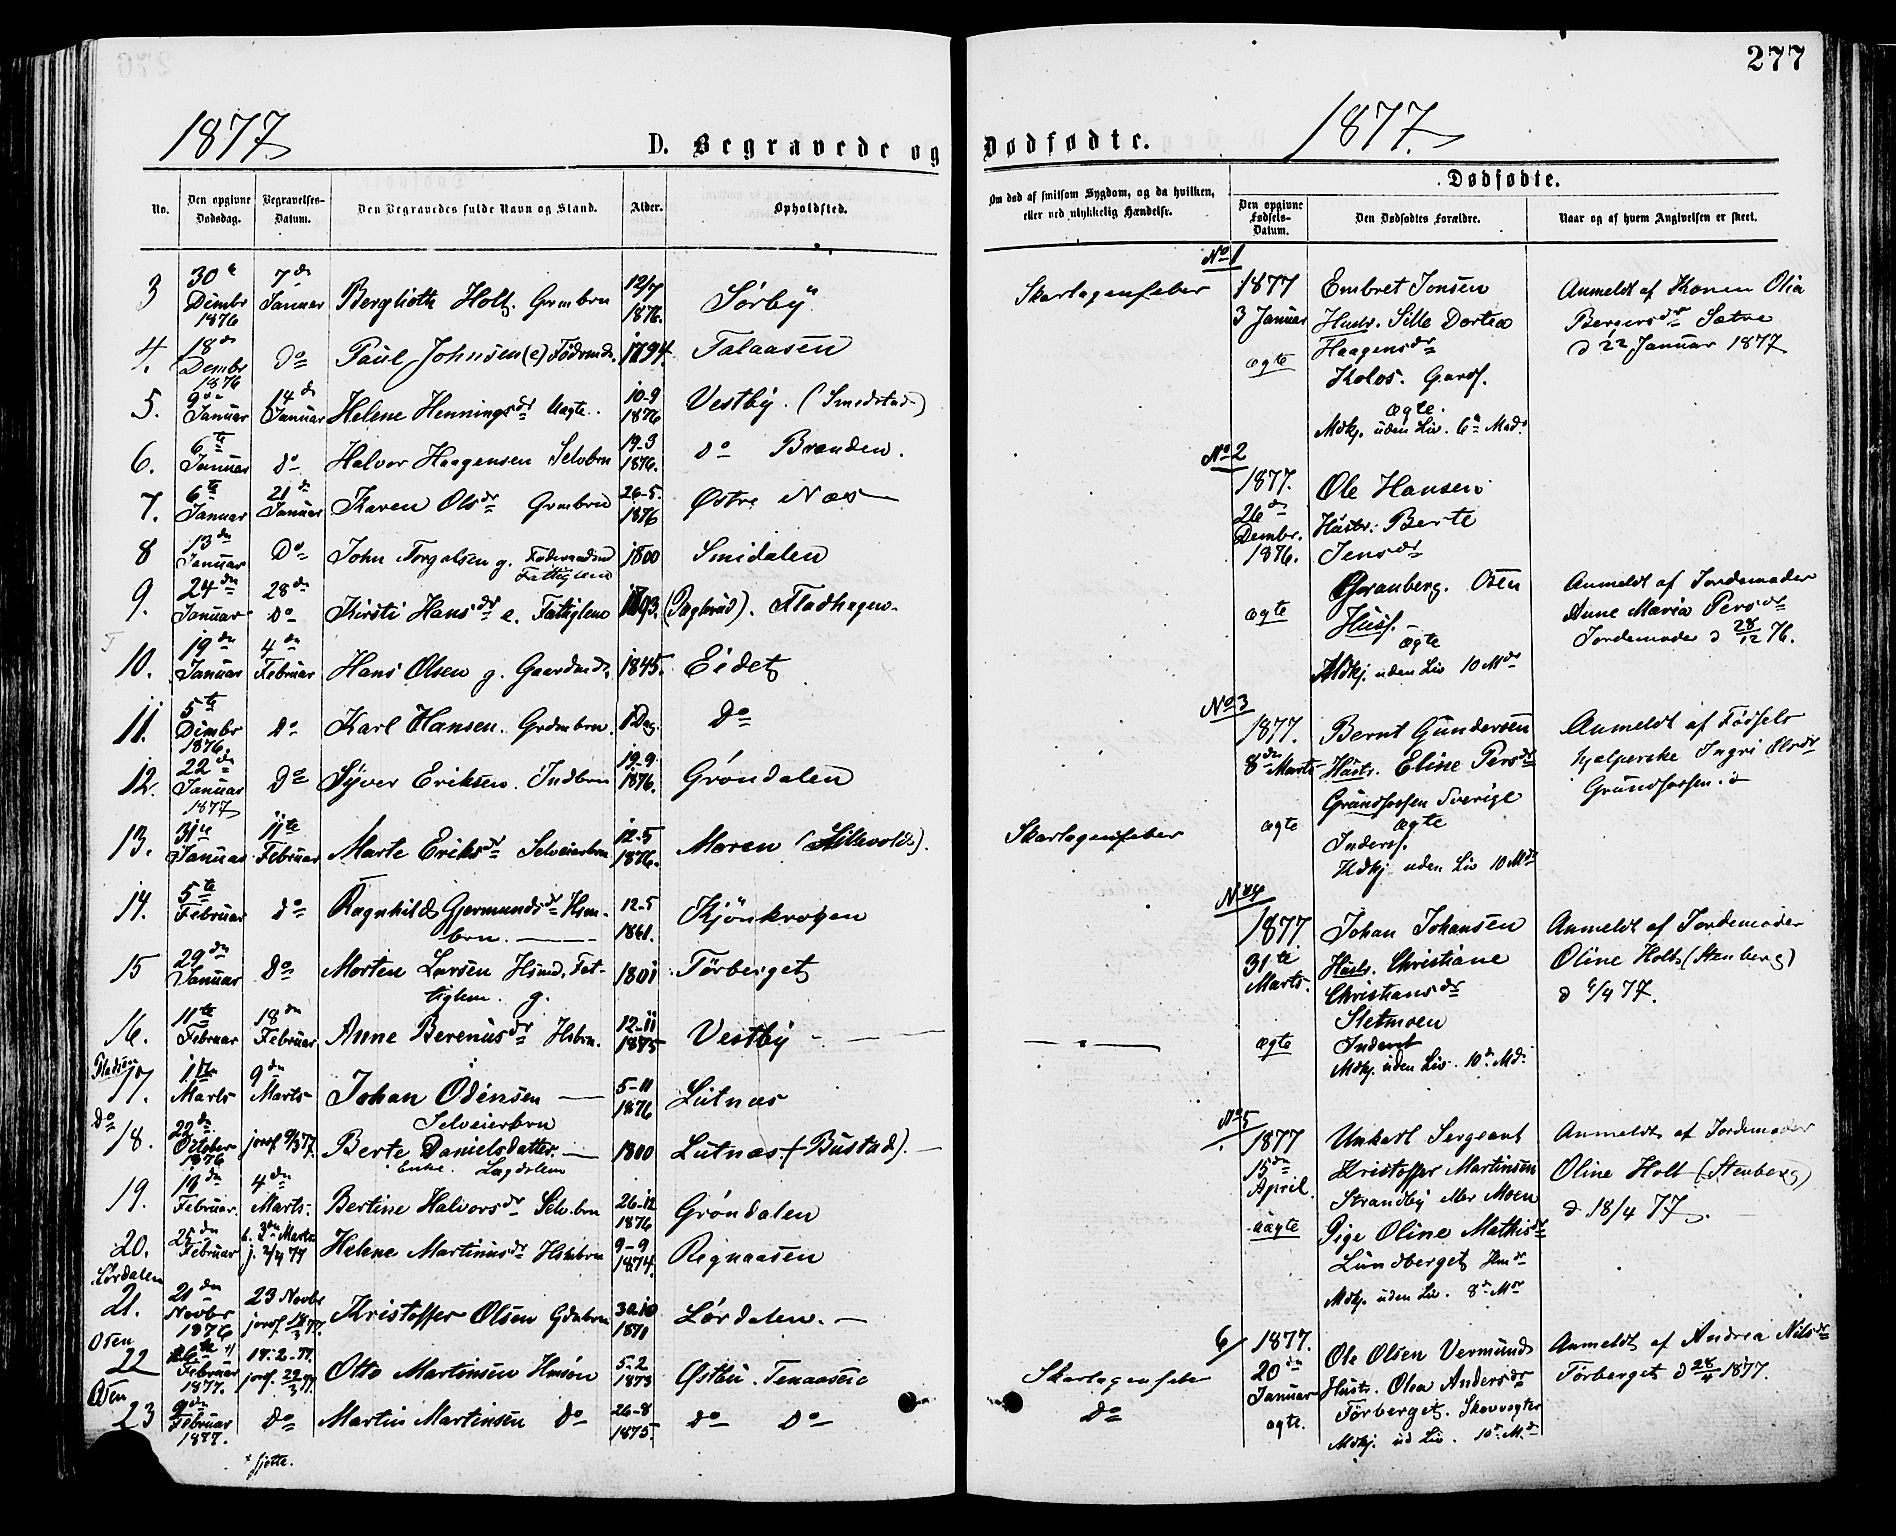 277
1877.
D. Begravede og
Dødfødte.
1877.
No.
Den opgivne Dødsdag.
Begravelses-Datum.
Den Begravedes fulde Navn og Stand.
Alder.
Opholdsted.
Om død af smitsom Sygdom, og da hvilken, eller ved ulykkelig Hændelse.
Dødfødte.
Den opgivne Fødsels-Datum.
Den Dødfødtes Forældre.
Naar og af hvem Angivelsen er skeet.
3 30 Dcmbr 1876 7de Januar Berglioth Holt. Grmbrn 12/7 1876. Sörby Skarlagensfeber
4. 18de Dcmbr 1876 Do Paul Johnsen (e) Födrmd. 1794. Falaasen
5. 9de Januar 14de Januar Helene Henningsdr Uægte. 10-9 1876 Vestby. (Smedstad)
6. 6te Januar Do Halvor Haagensen Selvbrn 19-3 1876. Do Brænden.
7. 6te Januar 21de Januar Karen Olsdr Grmbrn 26-5. 1876 Østre Næs
8 13de Januar Do John Torgalsen g. Föderaadsmd Fattiglem 1800 Smidalen
9. 24de Januar 28de Do Kirsti Hansdr e. Fattiglem 1793. (Dagbrud). Fladhagen.
10. 19de Januar 4de Februar Hans Olsen g. Gaardmd. 1845. Eidet
11. 5te Dcmbr 1876. Do Karl Hansen. Grdmbrn. 1 Dag. Do
12. 22de Januar 1877 Do Syver Eriksen. Indbrn 19-9. 1876. Gröndalen
13. 31te Januar 11te Februar Marte Eriksdr Selveierbrn 12-5 1876. Moren (Lillevold). Skarlagensfeber
14. 5te Februar Do Ragnhild Gjermundsdr Hsmbrn. 12-5 1861. Kjönkrogen
15 29de Januar Do Morten Larsen Hsmd. Fattiglem. g. 1801 Törberget
16. 11te Februar 18de Februar Anne Berenusdr Hsbrn. 12-11 1875 Vestby
17. 1ste Marts 9de Marts Johan Odensen Selveierbrn 5-11 1876 Lutnæs
Do
18. 22de October 1876 jordf 9/3 77. Berte Danielsdatter. Enke. Lægdslem 1800 Lutnæs (Bustad).
19. 19de Februar. 4de Marts. Bertine Halvorsdr Selv.brn 26-12 1876 Gröndalen
20. 25de Februar b. 3de Marts j. 2/4 77 Helene Martinusdr Hsmbrn 9-9 1874. Regnaasen
Lördalen
21. 21de Novbr 1876 23 Novbr jordf 18/3 77. Kristoffer Olsen Gdmbrn 30-10 1871 Lördalen.
Osen
22 Februar 1877. 18-2-77. jordf. 22/3 77. Otto Martinsen Hmsön 5-2 1873 Östbii. Tenaaseie Skarlagensfeber
Osen
23 9de Februar 1877. Do Martin Martinsen Do 26-8 1875. Do Do Do
* sjette.
No 1
1877 3 Januar ægte
Embret Jonsen
Hustr. Sille Dortea
Haagensdr
Kolos. Gards.
ægte.
Mdkj. uden Liv. 6 Mdr.
Anmeldt af Konen Olia
Bergersdr Sætre
d 22 Januar 1877
No 2
1877. 26de Dcmbr. 1876. ægte
Ole Hansen
Hustr. Berte
Jensdr
Granberg. Osen
Husf.
ægte
Mdkj. uden Liv 10 Mdr
Anmeldt af Jordemoder
Anne Maria Persdr
Jordemoder d 28/12 76.
No 3
1877. 8de Marts ægte
Bernt Gundersen
Hustr. Eline Persdr
Grundforsen Sverige
ægte
Inders.
Kdkj uden Liv 10 Mdr
Anmeldt af Födsels
hjælperske Ingri Olsdr
Grundforsen. d
No 4
1877. 31te Marts. ægte
Johan Johansen
Hustr. Christiane
Christiansdr
Sletmoen
Inderst
Mdkj. uden Liv. 10 Md.
Anmeldt af Jordemoder
Oline Holt (Stenberg)
d 6/4 77.
No 5
1877 15de April. uægte
Unkarl Sergeant
Kristoffer Martinsen
Strandby eller Moen
Pige Oline Mathisdr
Lundberget Hmdr
Mdkj. uden Liv. 8 Mdr
Anmeldt af Jordemoder
Oline Holt (Stenberg)
d 18/4 77.
6/ 1877. 20de Januar ægte.
Ole Olsen Vermunds
Hustr. Olea Andersdr
Törberget. Skovvogter
Mdkj. ud Liv. 10 Md.
Anmeldt af Andrea Nilsdr
Törberget d 28/4 1877.